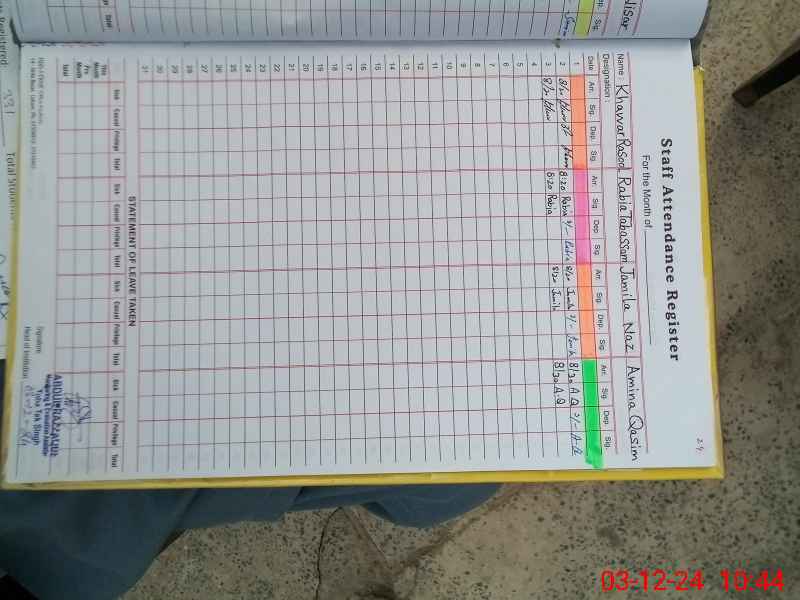 Staff Attendance Register
For the Month of
24
Name : Khawar Rasool Rabia Tabassum Jamila Naz Amina Qasim
Designation :
Date Arr. Sig. Dep. Sig. Arr. Sig. Dep. Sig. Arr. Sig. Dep. Sig. Arr. Sig. Dep. Sig.
1
2 8/20 8:20 Rabia 2/- Rabia 8/20 Jamila 2/- Jamila 8/20 A.Q 2/- A-Q
3 8/20 8:20 Rabia 8/20 Jamila 8/20 A.Q
4
5
6
7
8
9
10
11
12
13
14
15
16
17
18
19
20
21
22
23
24
25
26
27
28
29
30
31
STATEMENT OF LEAVE TAKEN
Sick Casual Privilege Total Sick Casual Privilege Total Sick Casual Privilege Total Sick Casual Privilege Total
This Month
Pre. Month
Total
Signature
Head of Institution
ABDUL RAZZAQ
Monitoring & Evaluation Assistant
Toba Tek Singh
Nisar
Dep. Sig.
Total
Registered 331
Total Students
03-12-24 10:44